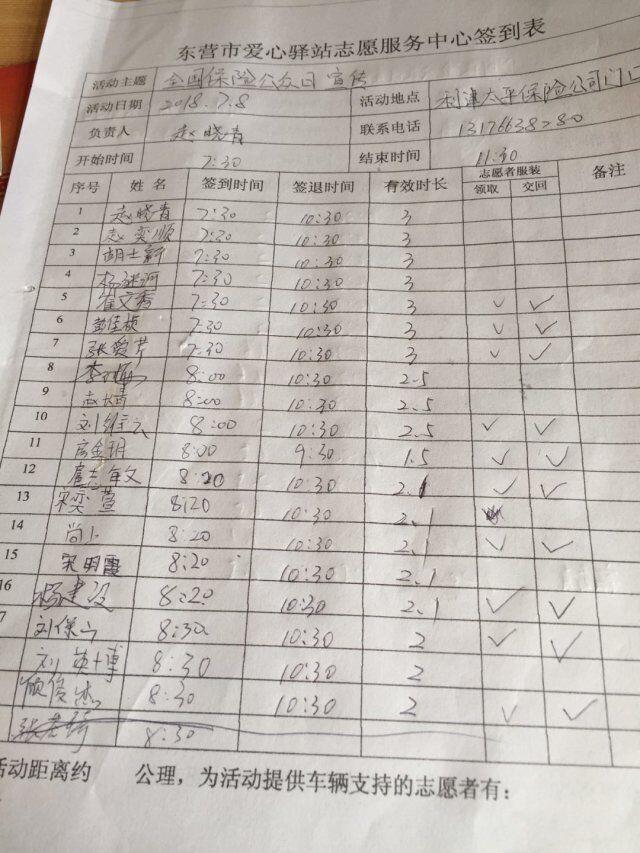 东营市爱心驿站志愿服务中心签到表
活动主题 全国保险公众日宣传 活动地点 利津太平保险公司门口
活动日期 2018.7.8 联系电话 13176638280
负责人 赵晓青
开始时间 7:30 结束时间 11:30
序号 姓名 签到时间 签退时间 有效时长 志愿者服装 备注
领取 交回
1 赵晓青 7:30 10:30 3
2 赵奕顺 7:30 10:30 3
3 胡士新 7:30 10:30 3
4 7:30 10:30 3
5 崔文秀 7:30 10:30 3 ✓ ✓
6 彭佳桢 7:30 10:30 3 ✓ ✓
7 张爱芹 7:30 10:30 3 ✓ ✓
8 8:00 10:30 2.5
9 8:00 10:30 2.5
10 刘维云 8:00 10:30 2.5 ✓ ✓
11 房金玥 8:00 9:30 1.5 ✓ ✓
12 8:20 10:30 2.1 ✓ ✓
13 宋奕萱 8:20 10:30 2.1
14 8:20 10:30 2.1 ✓ ✓
15 宋明霞 8:20 10:30 2.1
16 杨建设 8:20 10:30 2.1 ✓ ✓
7 刘保 8:30 10:30 2 ✓ ✓
刘英博 8:30 10:30 2
顾俊杰 8:30 10:30 2 ✓ ✓
8:30
活动距离约 公理，为活动提供车辆支持的志愿者有：